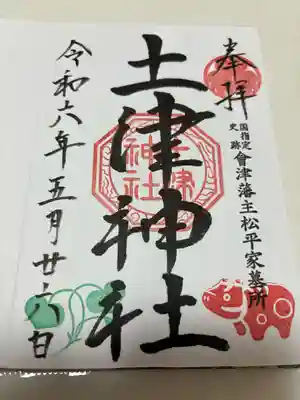 奉拝
国指定
史跡
會津藩主松平家墓所
土津神社
土津
神社
令和六年五月廿六日